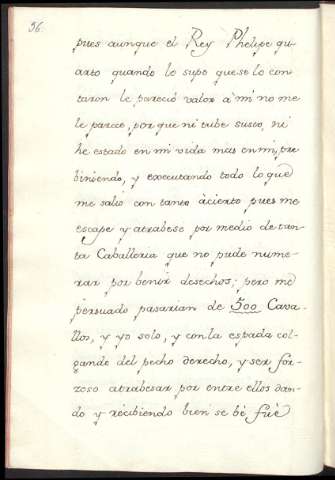 56.
pues aunque el Rey Phelipe qu-
arto quando lo supo que se lo con-
taron le pareció valor à mi no me
le parece, por que ni tube susto, ni
he estado en mi vida mas en mi, pre
biniendo, y executando todo lo que
me salio con tanto àcierto pues me
escape y atrabese por medio de tan-
ta Caballeria que no pude nume-
rar por benir desechos; pero me
persuado pasarian de 500 Cava-
llos, y yo solo, y con la espada col-
gande del pecho derecho, y ser for-
zoso atrabesar por entre ellos dan-
do y recibiendo bien se bè fuè